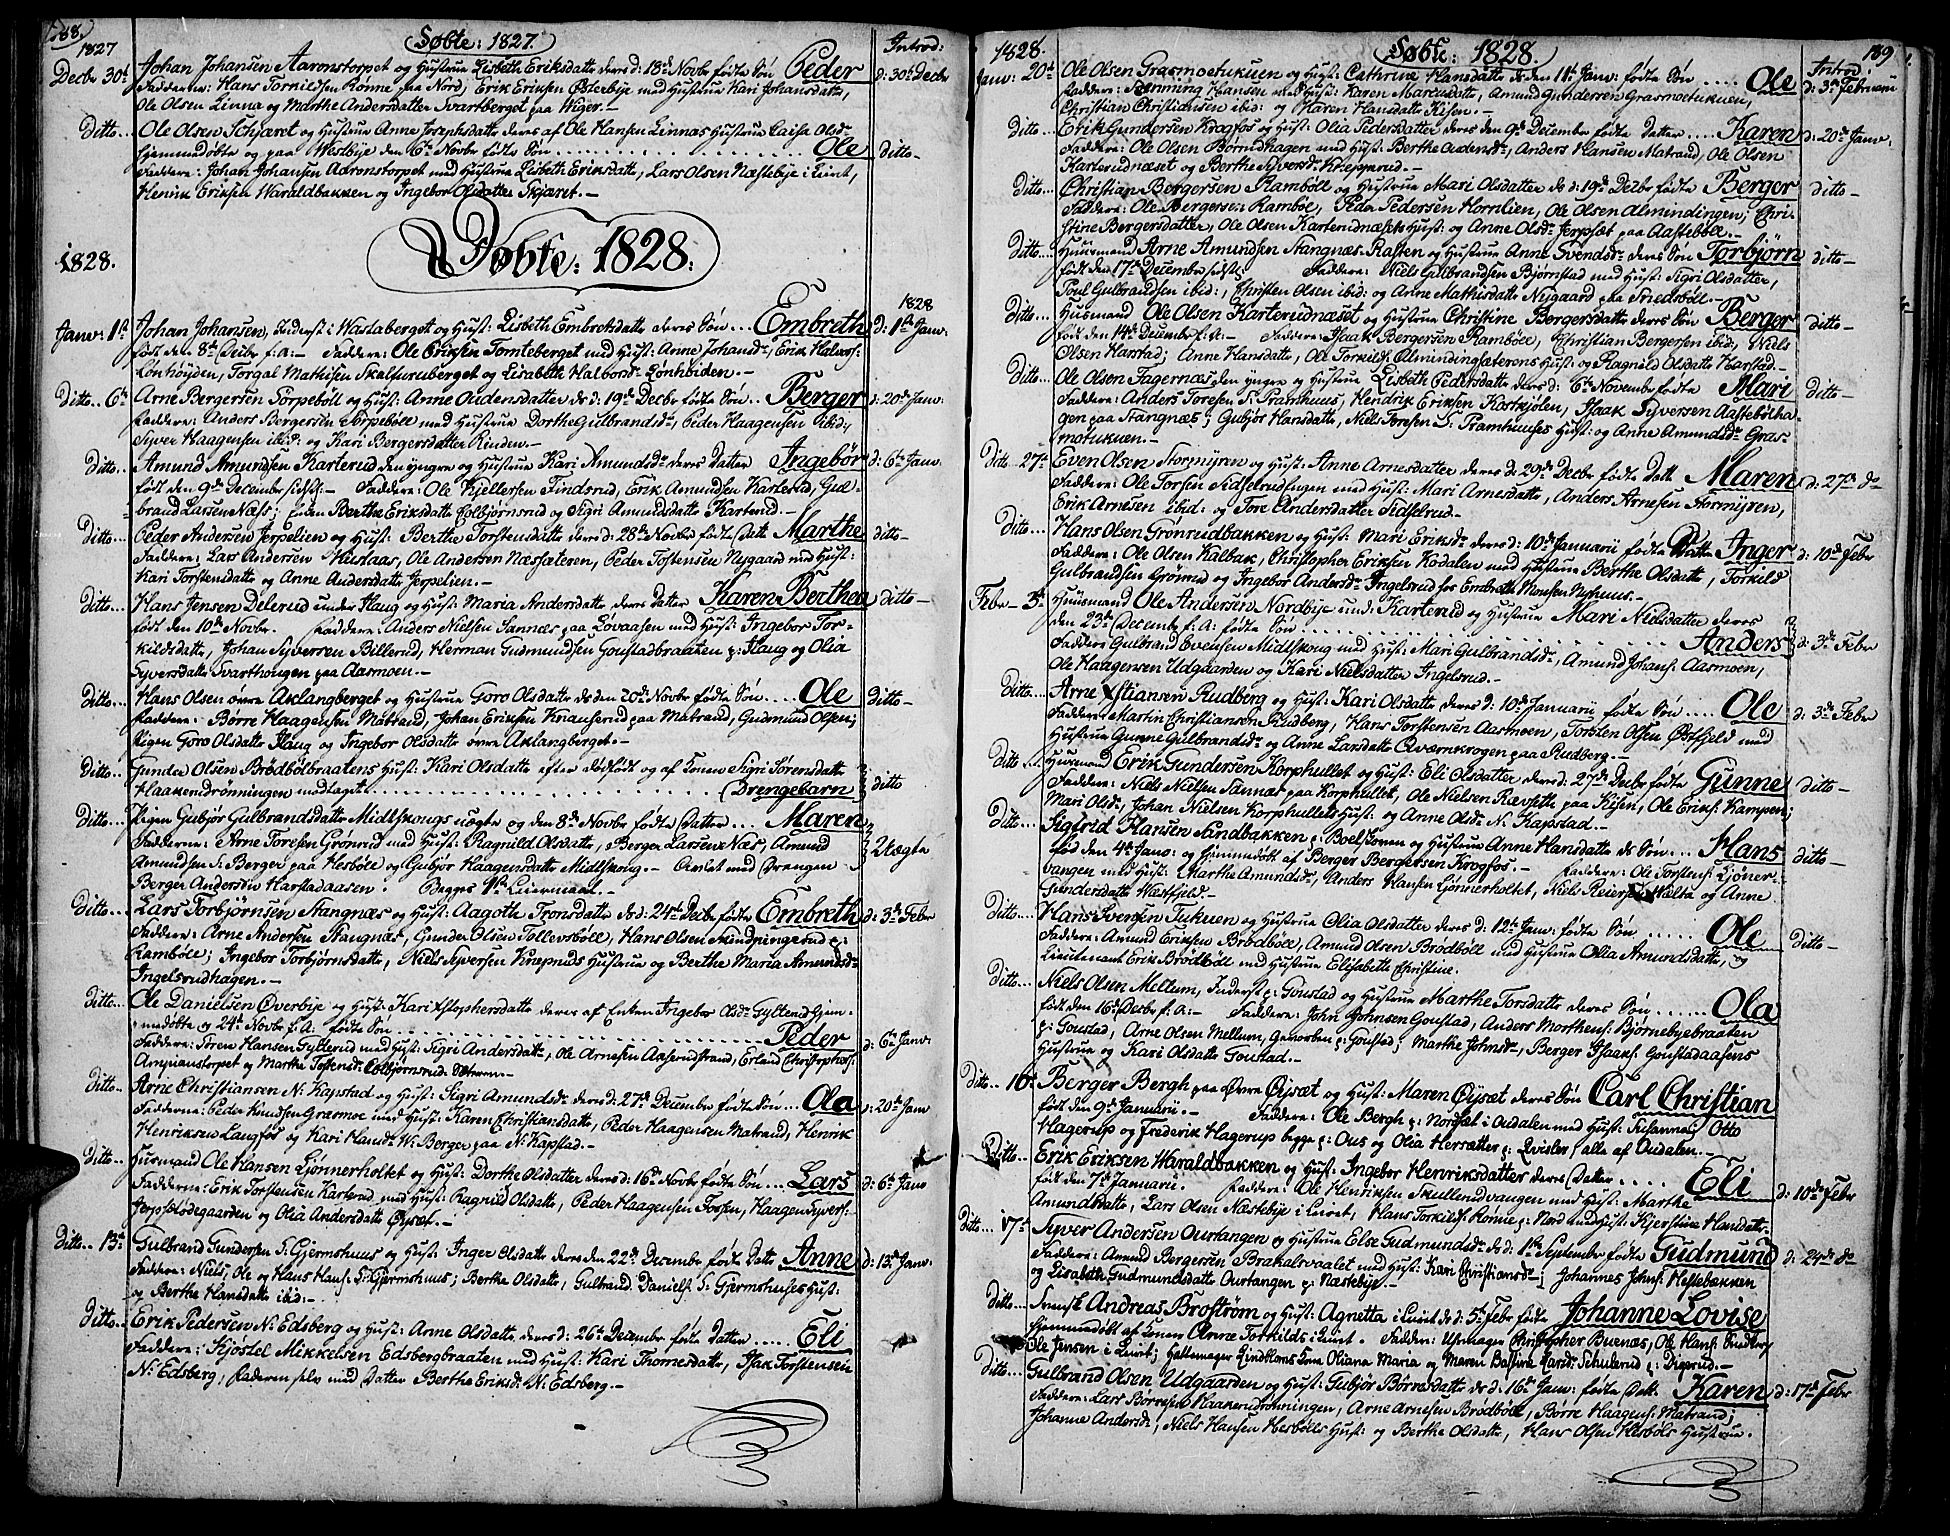 188.
Döbte: 1827.
Introd:
1827
Decbr 30t Johan Johansen Aaronstorpet og Hustrue Lisbeth Eriksdatte deres d: 18de Novbr fødte Søn Peder d: 30te Decbr
Faddere: Hans Tornildsen Rønne paa Nord, Erik Eriksen Østerbye med Hustrue Kari Johansdatte,
Ole Olsen Linna og Marthe Andersdatter Svartberget paa Wiger.-
Ditto... Ole Olsen Schjæret og Hustrue Anne Josephsdatte deres af Ole Hansen Linnas Hustrue Caisa Olsd-
hjemmedøbte og paa Westbye den 6te Novbr fødte Søn ..... Ole Ditto-
Faddere: Johan Johansen Aaronstorpet med Hustrue Lisbeth Eriksdatte, Lars Olsen Næstebye i Luint,
Henrik Eriksen Waraldbakken og Ingebor Olsdatter Skjæret.-
1828.
Døbte: 1828.
1828
Janv: 1te Johan Johansen, Inderst i Wastaberget og Hust: Lisbeth Embretsdatte deres Søn... Embreth d: 1te Janv:
født den 8de Decbr f:a:- Faddere: Ole Eriksen Tomteberget med Hust: Anne Johansdr, Erik Halvors:
Lønhøyden, Torgal Mathisen Skalfuruberget og Lisabeth Halvorsdr Lønhøiden.-
Ditto.. 6te Arne Bergersen Torpeböll og Hust: Anne Audensdatte ds d: 19de Decbr fødte Søn.. Berger d: 20de Janv:
Faddere: Anders Bergersen Torpeböll med Hustrue Dorthe Gulbrandsdr, Peder Haagensen ibid:,
Syver Haagensen ibid: og Kari Bergersdatter Rinden.-
Ditto... Amund Amundsen Karterud den yngre og Hustrue Kari Amundsdr deres Datter Ingebör d: 6te Janv.
født den 9de December sidstl.- Faddere: Ole Kjellersen Findsrud, Erik Amundsen Karterud, Gul-
brand Larsen Næss; Pigen Berthe Eriksdatte Colbjørnsrud og Sigri Amundsdatte Karterud.-
Ditto... Peder Andersen Jerpelien og Hust: Berthe Torstensdatte deres d: 28de Novbr fødte Datte Marthe ditto-
Faddere: Lars Andersen Huslaas, Ole Andersen Næssæteren, Peder Tostensen Nygaard med Hust:
Kari Torstensdatte og Anne Andersdatte Jerpelien.-
Ditto... Hans Jensen Delerud under Haug og Hust: Maria Andersdatte deres Datter Karen Berthea ditto-
født den 10de Novbr. Faddere: Anders Nielsen Sannæs paa Lövaasen med Hust: Ingebor Tor-
kildsdatte, Johan Syversen Billerud, Herman Gudmundsen Goustadbraaten p: Haug og Olia
Syversdatte Svarthougen paa Aasmoen.-
Ditto... Hans Olsen øvre Aklangberget og Hustrue Goro Olsdatte ds den 20de Novbr fødte Søn .... Ole ditto-
Faddere: Børre Haagensen Matrand, Johan Eriksen Knauserud paa Matrand, Gudmund Olsen;
Pigen Goro Olsdatte Haug og Ingebor Olsdatte øvre Aklangberget.-
Ditto... Gunder Olsen Brödbölbraatens Hust: Kari Olsdatte efter dødfødt og af Konen Sigri Sørensdatte
Haakerudrønningen modtaget ..... (Drengebarn ditto
Ditto... Pigen Gubjør Gulbrandsdatte Midtskougs uægte og den 8de Novbr fødte Datter... Maren
Faddere: Arne Toresen Grønrud med Hust: Ragnild Olsdatte, Berger Larsen Næs, Amund Uægte
Amundsen S: Berger paa Hesböle og Gubjør Haagensdatte Midtskoug.- Avlet med Drengen
Berger Andersen Harstadaasen. Begges 1te Leiermaal.-
Ditto... Lars Torbjørnsen Stangnæs og Hust: Aagothe Tronsdatte ds d: 24de Decbr fødte Embreth d: 3de Febr
Faddere: Arne Andersen Stangnæs, Gunder Olsen Tollevsböll, Hans Olsen Mindpingerud p:
Ramböle; Ingebor Torbjørnsdatte, Niels Syversen Kneprudss Hustrue og Berthe Maria Amundsdr
Ingelsrudhagen.-
Ditto... Ole Danielsen Øverbye og Hust: Kari Xstophersdatte deres af Enken Ingebor Olsdr Gyltrud Hjem-
medøbte og 24de Novbr f:A: fødte Søn ..... Peder d: 6te Janv:
Faddere: Søren Hansen Gylterud med Hust: Sigri Andersdatte, Ole Arnesen Aaserudstrand, Erland Christophers:
Ampianstorpet og Marthe Tostensdr Colbjørnsrud Sæteren.-
Ditto... Arne Christiansen N: Kapstad og Hust: Sigri Amundsdr deres d: 27de December fødte Søn... Ola d: 20de Janv
Faddere: Peder Knudsen Grasmoe med Hust: Karen Christiansdatte, Peder Haagensen Matrand, Henrik
Henriksen Langfos og Kari Hansdr W: Berger paa N: Kapstad.-
Ditto... Husmand Ole Hansen Ljønnerholtet og Hust: Dorthe Olsdatter deres d: 16de Novbr fødte Søn... Lars d: 6te Janv
Faddere: Erik Torstensen Karterud med Hust: Ragnild Olsdatte, Peder Haagensen Forsen, Haagen Syvers:
Jerpsödegaarden og Olia Andersdatte Øysæt.-
Ditto.. 13te Gulbrand Gundersen S: Gjermshuus og Hust: Inger Olsdatte deres den 22de December fødte Datte Anne d: 13de Janv:
Faddere: Niels, Ole og Hans Hans: S: Gjermshuus; Berthe Olsdatte, Gulbrand Daniels: S: Gjermshuses Hust:
og Berthe Hansdatte ibid:-
Ditto... Erik Pedersen N: Edsberg og Hust: Anne Olsdatte deres d: 26de December fødte Datter..... Eli
Faddere: Kjöstel Mikkelsen Edsbergbraaten med Hust: Kari Thomesdatte, Isak Torstensen
N: Edsberg, Faderen selv med Datter Berthe Eriksdr N: Edsberg.-
189
Döbte: 1828.
Introd:
1828.
Janv: 20de Ole Olsen Grasmoetukuen og Hust: Cathrine Hansdatte ds den 11te Janv: fødte Søn .... Ole d: 3de Februari
Faddere: Flemming Hansen med Hust: Karen Marcusdatte, Amund Gundersen Grasmoetukuen,
Christian Christiansen ibid: og Maren Hansdatte Kisen.-
Ditto... Erik Gundersen Krogfos og Hust: Olia Pedersdatter deres den 9de December fødte Datter .... Karen d: 20de Janv:
Faddere: Ole Olsen Børnedhagen med Hust: Berthe Audensdr, Anders Hansen Matrand, Ole Olsen
Karterudnæset og Berthe Syversdr Knepprud.-
Ditto... Christian Bergersen Ramböll og Hustrue Mari Olsdatter ds d: 19de Decbr fødte Berger ditto-
Faddere: Ole Bergersen Ramböe, Peder Pedersen Hornlien, Ole Olsen Almindingen; Chri-
stine Bergersdatter, Ole Olsen Karterudnæssets Hust: og Anne Olsdr Jerpsæt paa Aasteböl.-
Ditto... Huusmand Arne Amundsen Stangnæs Rasten og Hustrue Anne Svendsdr deres Søn Torbjörn ditto-
født den 17de December sidstl. Faddere: Niels Gulbrandsen Bjørnstad med Hust: Sigri Olsdatter,
Poul Gulbrandsen ibid:, Christen Olsen ibid: og Anne Mathisdatte Nygaard paa Sneds böll.-
Ditto... Husmand Ole Olsen Karterudnæset og Hustrue Christine Bergersdatte deres Søn Berger ditto-
født den 14de December f:A:- Faddere: Isaak Bergersen Ramböe, Christian Bergersen ibid, Niels
Olsen Harstad; Anne Hansdatte, Ole Torkilds: Almindingsæterens Hust: og Ragnild Olsdatte Harstad.-
Ditto... Ole Olsen Fagernæs den yngre og Hustrue Lisbeth Pedersdatte deres d: 6te November fødte Mari ditto-
Faddere: Anders Toresen S: Pramhuus, Hendrik Eriksen Kostkjølen, Isaak Syversen Aasteböha-
gen paa Stangnæs; Gubjör Hansdatte, Niels Toresen S: Pramhuuses Hust: og Anne Amundsdr Gras-
motukuen.-
Ditto 27de Even Olsen Stormyren og Hust: Anne Arnesdatter deres d: 29de Decbr fødte Datt Maren d: 27de ds
Faddere: Ole Torsen Sidselrudhugen med Hust: Mari Arnesdatte, Anders Arnesen Stormyren,
Erik Arnesen ibid: og Tore Andersdatter Sidselrud.-
Ditto... Hans Olsen Grønrudbakken og Hust: Mari Eriksdr deres d: 10de Januarii fødte Datte Inger d: 10de Febr
Faddere: Ole Olsen Kalbak, Christopher Eriksen Kodalen med Hustrue Berthe Olsdatte, Torkild
Gulbrandsen Grønrud og Ingebor Andersdr Ingelsrud hos Embreth Monsen Nyhuus.-
Febr- 3de Huusmand Ole Andersen Nordbye und: Karterud og Hustrue Mari Nielsdatter deres
den 23de Decemb: f:A: fødte Søn ..... Anders d: 3de Febr
Faddere Gulbrand Evensen Midtskoug med Hust: Mari Gulbrandsdr, Amund Johans: Aasmoen,
Ole Haagensen Udgaarden og Kari Nielsdatter Ingelsrud.-
Ditto... Arne Xstiansen Rudberg og Hust: Kari Olsdatte deres d: 10de Januarii fødte Søn .... Ole d: 3de Febr
Faddere: Martin Christiansen Rudberg, Hans Torstensen Aasmoen, Torsten Olsen Østfjeld med
Hustrue Gunne Gulbrandsdr og Anne Larsdatte Qværnkrogen paa Rudberg.-
Ditto... Husmand Erik Gundersen Korphullet og Hust: Eli Olsdatter deres d: 27de Decbr fødte Gunne ditto-
Faddere: Niels Nielsen Sannæs paa Korphullet, Ole Nielsen Rævsætte paa Kisen, Ole Eriks: Kampen;
Mari Olsdr, Johan Nielsen Korphullets Hust: og Anne Olsdr N: Kapstad.-
Ditto... Sigfrid Hansen Lindbakken p: Boelstomen og Hustrue Anne Hansdatte ds Søn... Hans ditto-
født den 4de Janv: og hjemmedøbt af Berger Bergersen Krogfos.- Faddere: Ole Torstens: Ljöner-
vangen med Hust: Marthe Amundsdr, Anders Hansen Ljönnerholtet, Niels Reiersen Velta og Anne
Gundersdatte Wæstfjeld.-
Ditto... Hans Iversen Tukuen og Hustrue Olia Olsdatter deres d: 12te Janv: fødte Søn ..... Ole ditto-
Faddere: Amund Eriksen Brödböll, Amund Olsen Brödböll med Hustrue Olia Amundsdatte, og
Lieutenant Erik Brödböll med Hustrue Elisabeth Christine.
Ditto... Niels Olsen Meltum, Inderst p: Goustad og Hustrue Marthe Torsdatte deres Søn ...... Ola
født den 16de Decbr f:a:- Faddere: John Johnsen Goustad, Anders Morthens: Bjørnebyebraaten
p: Goustad, Arne Olsen Mellum, Gevorben p: Goustad; Marthe Johnsdr, Berger Isaaks: Goustadaasens
Hustrue og Kari Olsdatte Goustad.-
Ditto.. 10de Berger Bergh paa Øvre Øysæt og Hust: Maren Øysæt deres Søn Carl Christian
født den 9de Januarii.- Faddere: Ole Bergh p: Nordsæt i Oudalen med Hust: Susanna, Otto
Hagerup og Frederik Hagerup begge p: Ous og Olia Herrætter p: Qvisler, alle af Oudalen.-
Ditto... Erik Eriksen Waraldbakken og Hust: Ingebor Henriksdatter deres Datter .... Eli d: 10de Febr
født den 7de Januarii. Faddere: Ole Henriksen Skullerudvangen med Hust: Marthe
Amundsdatte, Lars Olsen Næstebye i Luret, Hans Torkilds: Rønne p: Nord med Hust: Kjerstine Hansdatte
Ditto... 17de Syver Andersen Ourtangen og Hustrue Else Gudmundsdr ds d: 1te September fødte Gudmund d: 24de ds
Faddere: Amund Bergersen Brakalsvaalet med Hust: Kari Christiansdr; Johannes Johns: Hestebækken
og Lisabeth Gudmundsdatte Ourtangen p: Næstebye.-
Ditto... Svensk Andreas Broström og Hust: Agnetta i Luret ds d: 5te Febr fødte Johanne Lovise
hjemmedøbt af Konen Anne Torkilds i Luret.- Faddere: Uhrmager Christopher Buenæs, Ole Hans: Fredbøy
Ole Jensen i Luret; Hattemager Lindbloms Kone Oliana Maria og Maren
Ditto... Gulbrand Olsen Udgaarden og Hust: Gubjør Børresdatte ds d: 16de Janv: fødte Datt. Karen d: 17de Febr
Faddere: Lars Børresen Haakerudrønningen, Arne Arnesen Brödböll, Børre Haagens: Matrand;
Johanne Andersdr, Niels Hansen Hesböls Hust: og Berthe Olsdatte, Hans Olsen Hesböls Hustrue.